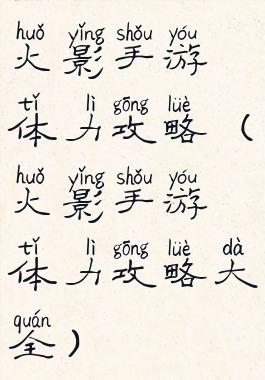 huǒ yǐng shǒu yóu
火影手游
tǐ lì gōng lüè
体力攻略（
huǒ yǐng shǒu yóu
火影手游
tǐ lì gōng lüè dà
体力攻略大
quán
全）